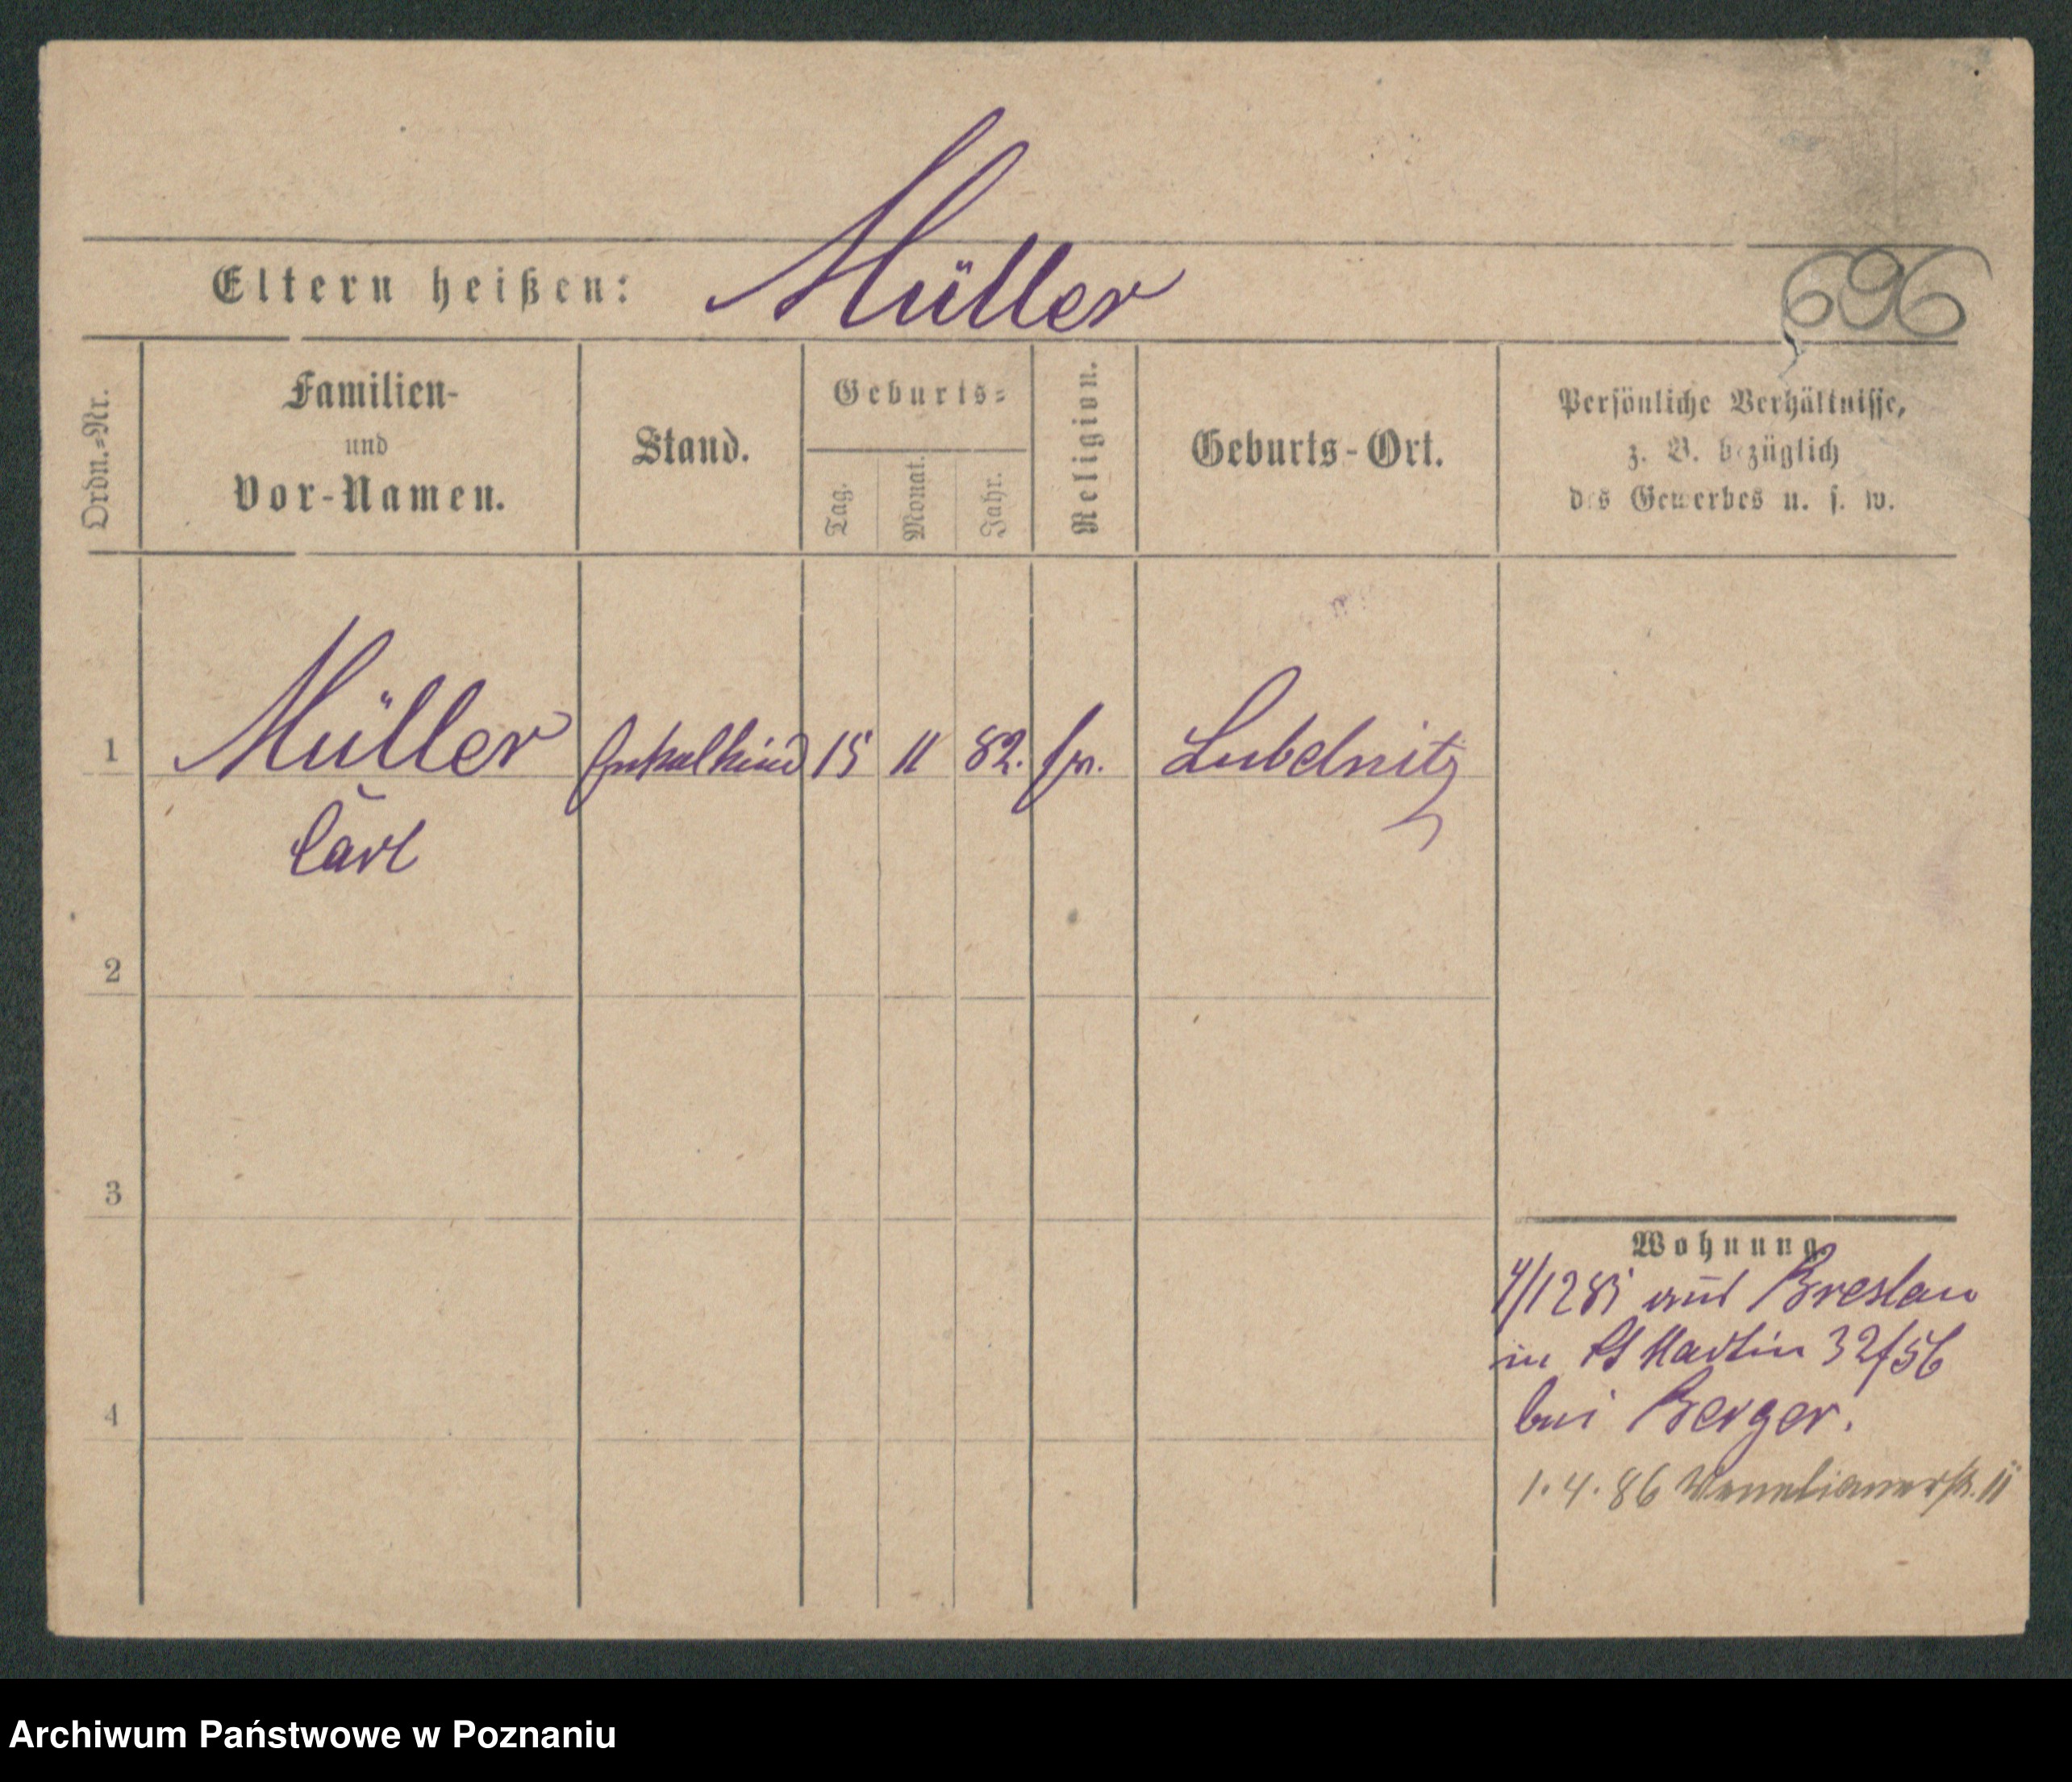 Eltern heißen: Müller
696
Ordn.=Nr.
Familien-
und
Vor-Namen.
Stand.
Geburts=
Tag.
Monat.
Jahr.
Religion.
Geburts-Ort.
Persönliche Verhältnisse,
z. B. bezüglich
des Gewerbes u. s. w.
1 Müller 15 11 82. Lubdnitz
Carl
2
3
4
Wohnung.
aus Breslau
in St Martin 32/56
bei Berger.
1.4.86
Archiwum Państwowe w Poznaniu